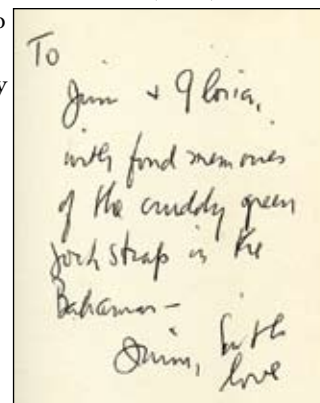 To
Jim + Gloria,
with fond memories
of the cruddy green
jock strap in the
Bahamas –
love